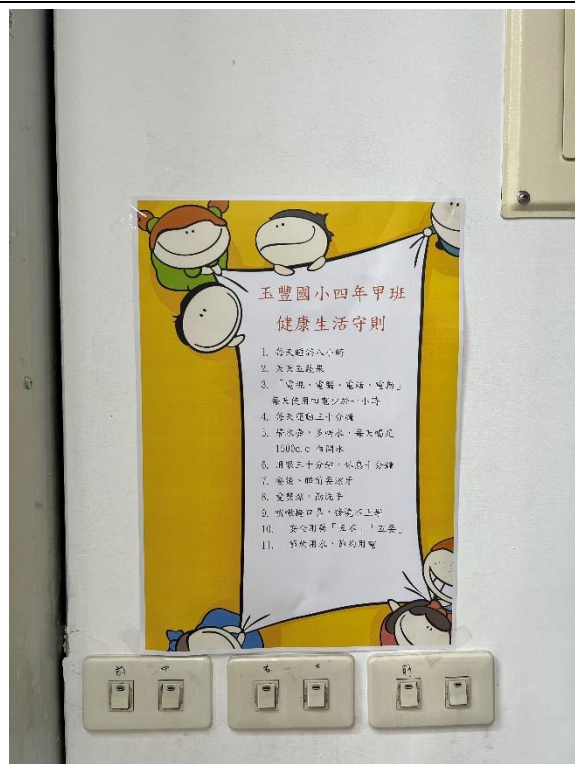 玉豐國小四年甲班
健康生活守則
1. 每天睡滿八小時
2. 天天五蔬果
3. 「電視、電腦、電話、電玩」
每天使用加起少於一小時
4. 每天運動三十分鐘
5. 帶水壺,多喝水,每天喝足
1500c.c 白開水
6. 用眼三十分鐘,休息十分鐘
7. 餐後、睡前要潔牙
8. 愛整潔,勤洗手
9. 咳嗽掩口鼻,
10. 「五不」「五要」
11. 節約用水,節約用電
前 中
前